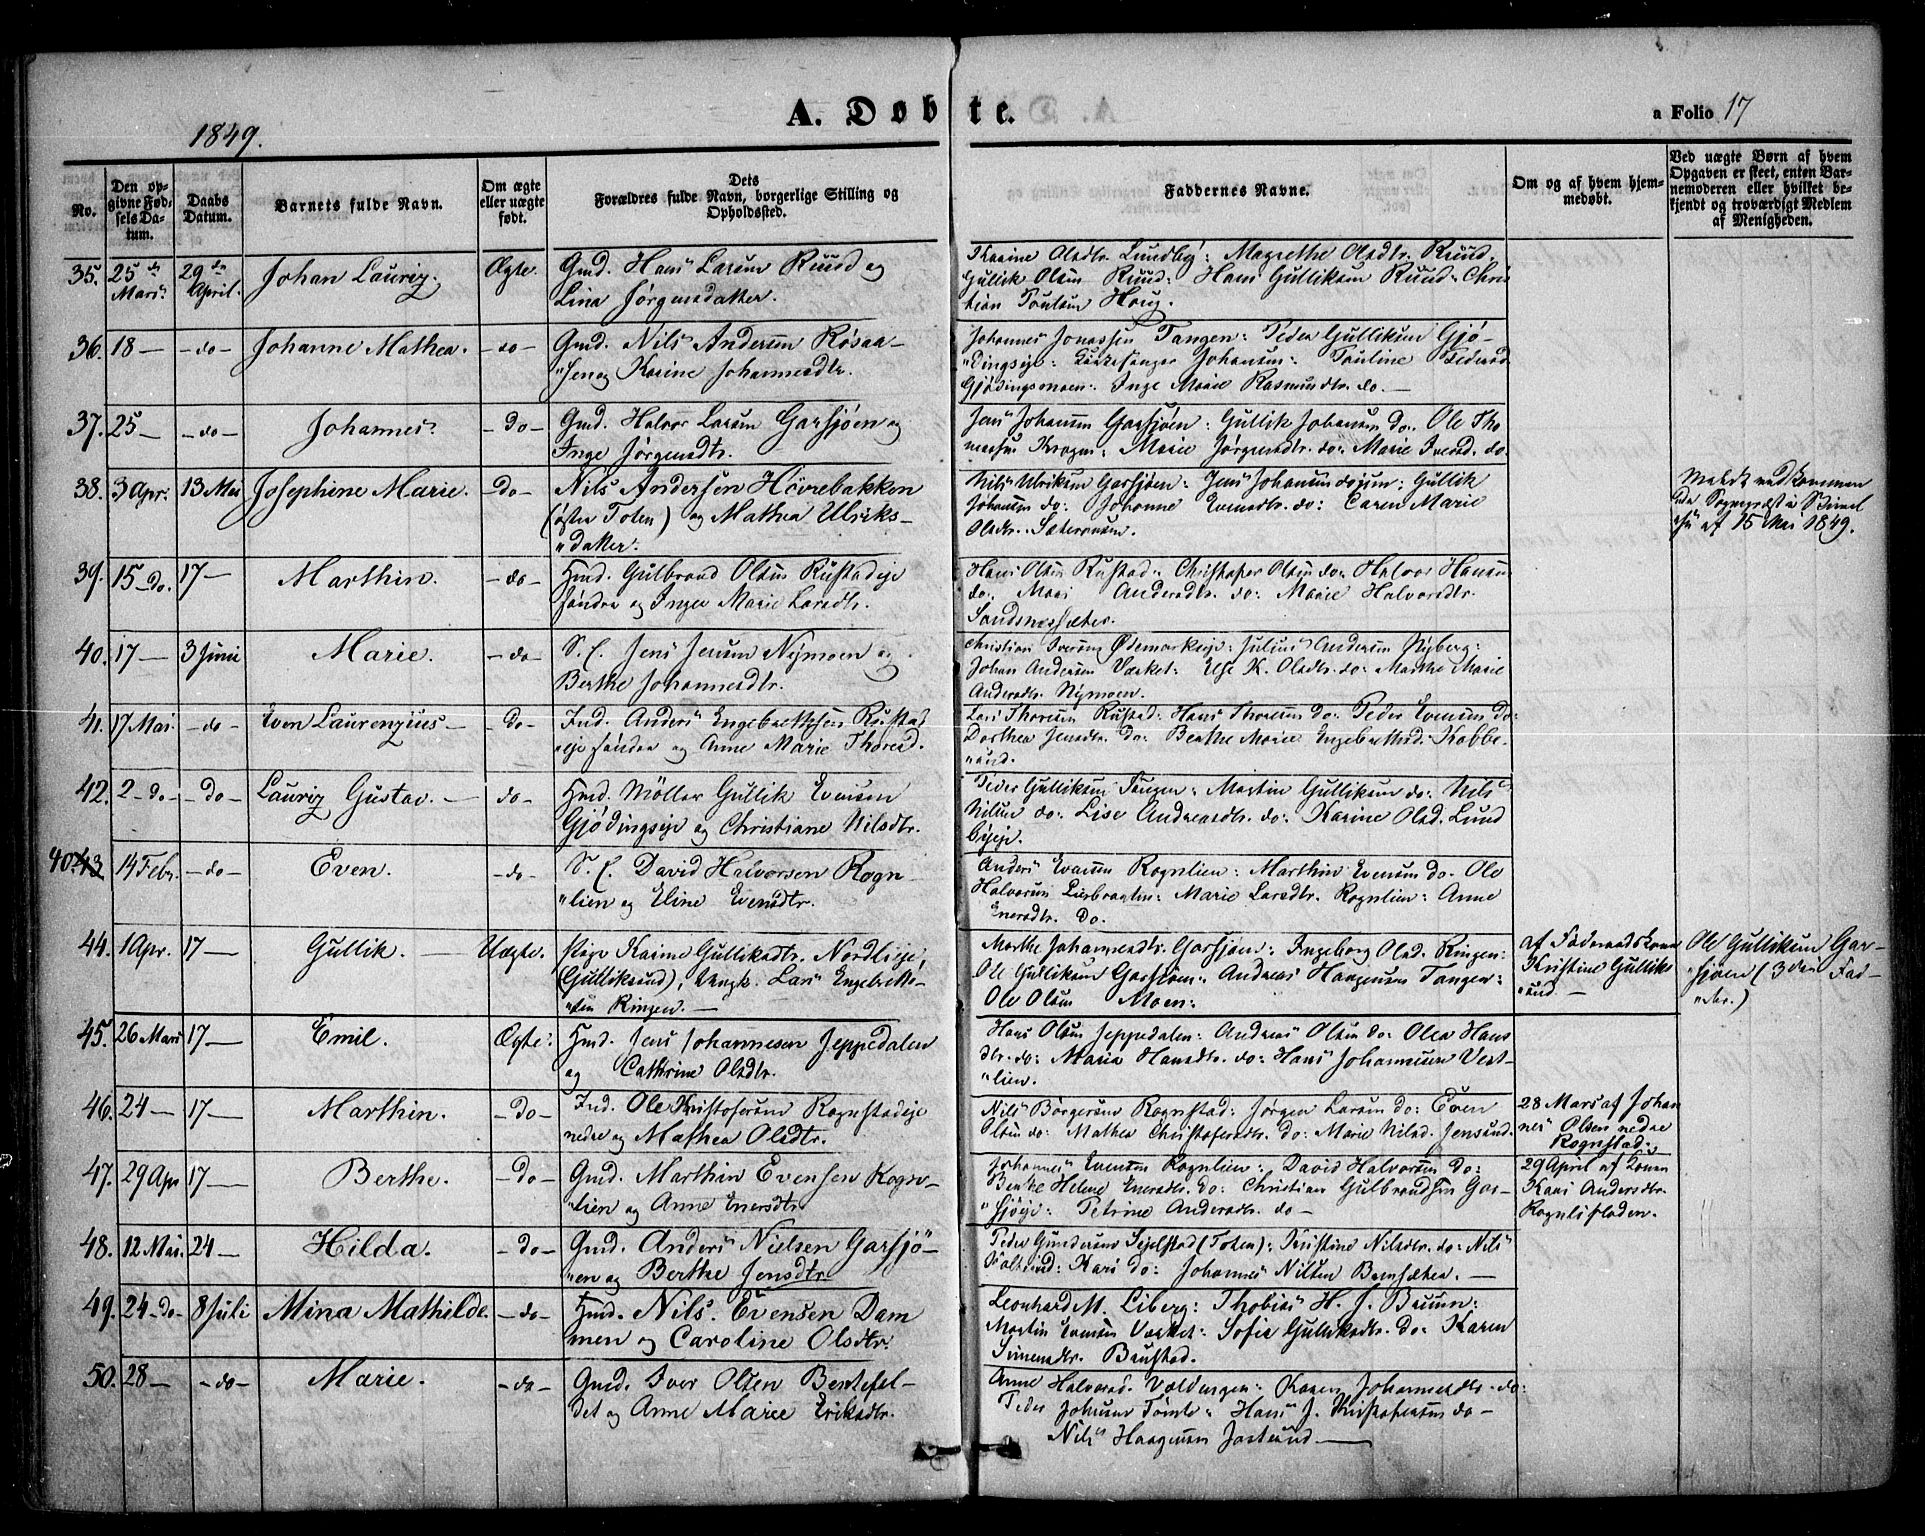 A. Døbte.
1849.
a Folio 17
No.
Den opgivne Fødselsdatum.
Daabs Datum.
Barnets fulde Navn.
Om ægte eller uægte født.
Dets Forældres fulde Navn, borgerlige Stilling og Opholdssted.
Faddernes Navne.
Om og af hvem hjemmedøbt.
Ved uægte Børn af hvem Opgaven er skeet, enten Barnemoderen eller hvilket bekjendt og troværdigt Medlem af Menigheden.
35. 25de Mars. 29de April. Johan Lauriz. Ægte. Gmd. Hans Larsen Ruud og
Lina Jørgensdatter.
Karine Olsdtr. Lundby: Magrethe Olsdtr. Ruud.
Gullik Olsen Ruud: Hans Gulliksen Ruud: Chris
tian Poulsen Houg.
36. 18 — - do - Johanne Mathea. - do - Gmd. Nils Andersen Røsaa-
"sen og Karine Johannesdtr.
Johannes Jonassen Tangen: Peder Gulliksen Gjø-
"dingseje: Johansen: Pauline Pedersd.
Gjødingsmoen: Inge Marie Rasmusdtr. do. —
37. 25 — - do - Johannes. - Do - Gmd. Halvor Larsen Garsjøen og
Inge Jørgensdtr. —
Jens Johansen Garsjøen: Gullik Johansen do. Ole Tho
massen Kragen: Marie Jørgensdtr. do: Marie Iversd. do
38. 3 Apr: 13 Mai Josephine Marie. - Do - Nils Andersen Høvrebakken
(øster Toten) og Mathea Ulriks-
"datter.
Nils Ulriksen Garsjøen: Jens Johansen do: Gullik
Johansen do: Johanne Evensdtr. do: Caren Marie
Olsdtr.
Meldt vedkommen
de Sogneprest i Skrivel
se af 15 Mai 1849.
39. 15 - Do. 17 — Marthin. - do - Hmd. Gulbrand Olsen Rustadeje
søndre og Inger Marie Larsdtr.
Hans Olsen Rustad: Christofer Olsen do: Halvor Hansen
do. Mari Andersdtr. do: Marie Halvorsdtr.
Sandsnessæter.
40. 17 — 3 Juni Marie. - do - S. f. Jens Jensen Nymoen og
Berthe Johannesdtr.
Christian Iversen Ødemarkseje: Julius Andersen Nyberg:
Johan Andersen Værket: Else K. Olsdtr. do: Marthe Marie
Andersdtr. Nymoen.
41. 17 Mai. - do - Even Laurenzius - Do - Ind. Anders Engebrethsen Rustad
eje søndre og Anne Marie Thoresd.
Lars Thoresen Rustad: Hans Thoresen do: Peder Evensen do:
Dorthea Jensdtr. do: Berthe Marie Engebrethsd: Kobbe-
"rud.
42. 2 - do - - Do - Lauriz Gustav. — do - Hmd. Møller Gullik Evensen
Gjødingseje og Christiane Nilsdtr.
Peder Gulliksen Tangen: Martin Gulliksen do: Nils
Nilsen do: Lise Andreasdtr. do: Karine Olsd. Lund
byeje.
40. 43 14 Febr. - do - Even. - do - S. f. David Halvorsen Rogn-
"lien og Eline Evensdtr.
Anders Evensen Rognlien: Marthin Evensen do. Ole
Halvorsen Liebragten: Marie Larsdtr. Rognlien: Anne
Enersdtr. Do.
44. 1 Apr. 17 — Gullik. — Uægte. Pige Karine Gulliksdtr. Nordlieje,
(Gulliksrud), Ungk. Lars Engebrets-
"sen Ringen. —
Marthe Johannesdtr. Garsjøen: Ingeborg Olsd. Ringen:
Ole Gulliksen Garsjøen: Andreas Haagensen Tangen:
Ole Olsen Moen:
af Føderaadskone
Kristine Gulliks
"rud. —
Ole Gulliksen Gar-
"sjøen (3die Fad-
"der.)
45. 26 Mars 17 — Emil. Ægte: Hmd. Jens Johannesen Jeppedalen
og Cathrine Olsdtr.
Hans Olsen Jeppedalen: Andreas Olsen do: Olea Hans
dtr. do: Maria Hansdtr. do: Hans Johannesen Vest-
"lien.
46. 24 — 17 — Marthin. - Do - Ind. Ole Kristofersen Rognstadeje
nedre og Mathea Olsdtr.
Nils Børgersen Rognstad: Jørgen Larsen do: Even
Olsen do: Mathea Christofersdtr. do: Marie Nilsd. Jensrud.
28 Mars af Johan
nes Olsen nedre
Rognstad.
47. 29 Apr 17 — Berthe. - Do - Gmd. Marthin Evensen Rogn-
"lien og Anne Enersdtr.
Johannes Evensen Rognlien: David Halvorsen do:
Berthe Helene Enersdtr. do: Christian Gulbrandsen Gar-
"sjøeje: Petrine Andersdtr. do —
29 April af Konen
Kari Andersdtr.
Rognlifladen.
48. 12 Mai. 24 — Hilda. - Do - Gmd. Anders Nielsen Garsjø-
"en og Berthe Jensdtr.
Peder Gundersen Sejelstad (Toten): Kristine Nilsdtr. do: Nils
Kari do: Johannes Nilsen Bensæter. —
49. 24 - Do - 8 Juli Mina Mathilde. - do - Hmd. Nils Evensen Dam
men og Caroline Olsdtr.
Leonhard M. Liberg: Thobias H. J. Bruun:
Martin Evensen Værket: Sofie Gulliksdtr. do: Karen
Simensdtr. Brustad.
50. 28 — - do - Marie. - do - Gmd. Iver Olsen Bentefel-
"det og Anne Marie Eriksdtr.
Anne Halvorsd. Valdengen: Karen Johannesdtr. do:
Peder Johnsen Tømte: Hans J. Kristofersen do —
Nils Haagensen Jostrund —